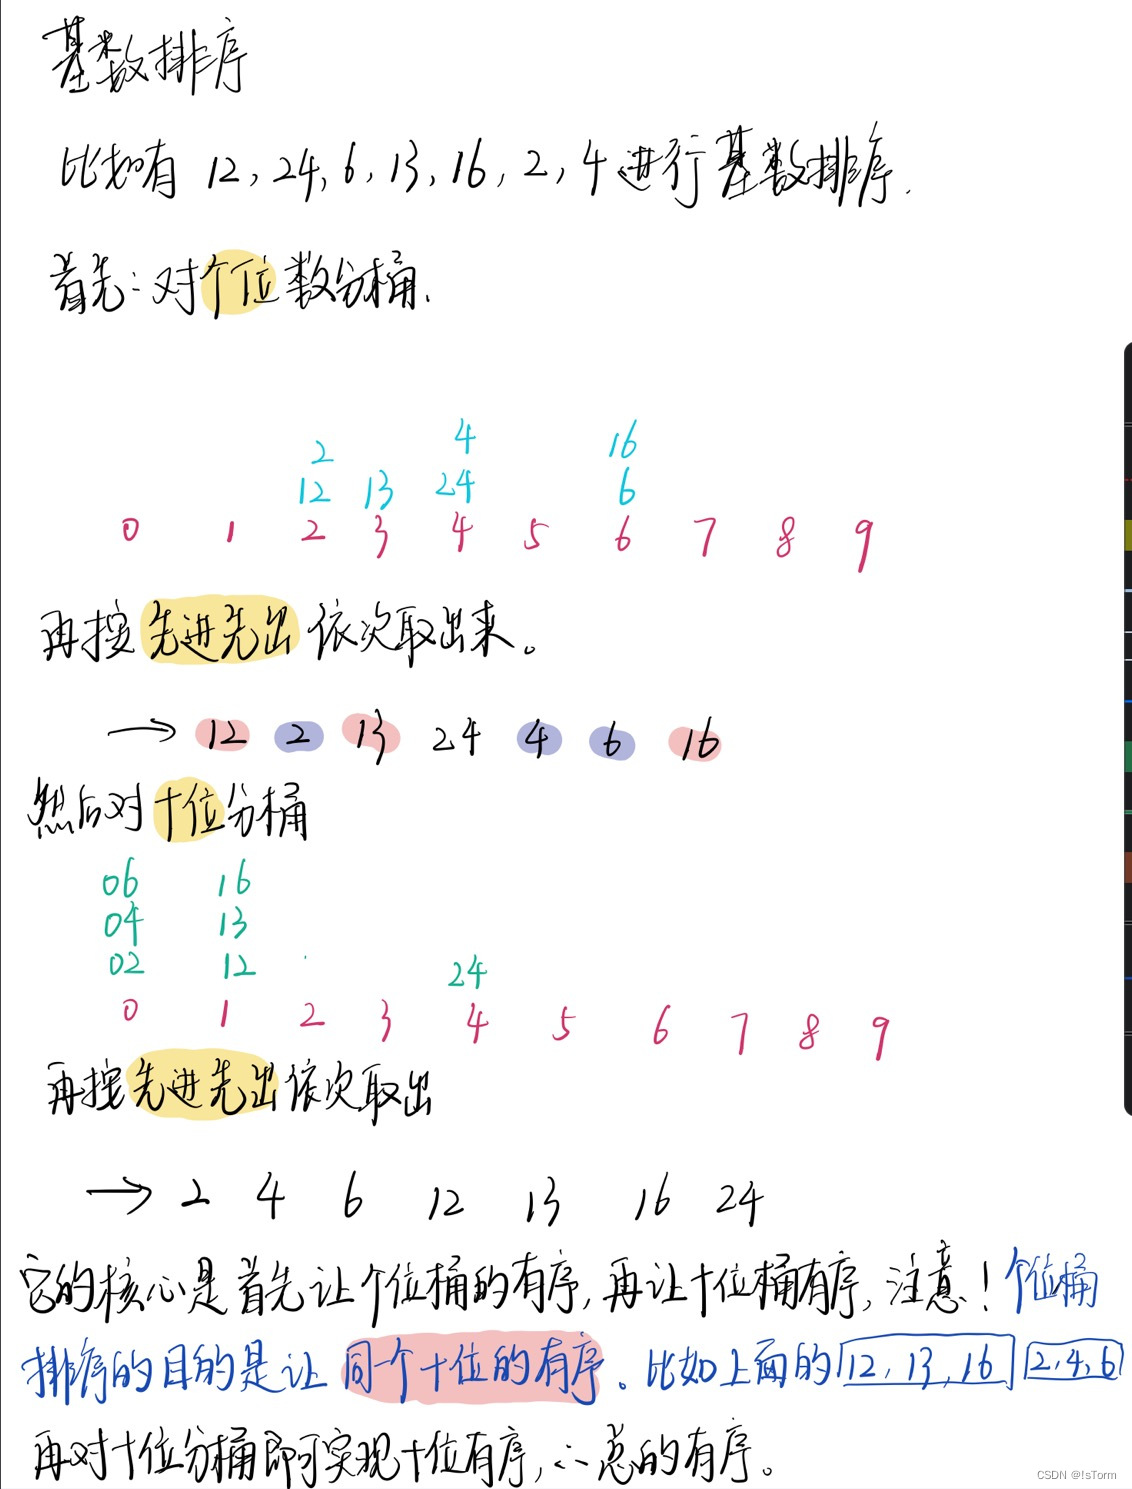 基数排序
比如有 12, 24, 6, 13, 16, 2, 4 进行基数排序.
首先:对个位数分桶.
2 4 16
12 13 24 6
0 1 2 3 4 5 6 7 8 9
再按先进先出依次取出来。
→ 12 2 13 24 4 6 16
然后对十位分桶
06 16
04 13
02 12 24
0 1 2 3 4 5 6 7 8 9
再按先进先出依次取出
→ 2 4 6 12 13 16 24
它的核心是首先让个位桶的有序,再让十位桶有序,注意!个位桶
排序的目的是让同一个十位的有序。比如上面的 12, 13, 16 2, 4, 6
再对十位分桶即可实现十位有序,∴总的有序。
CSDN @!sTorm